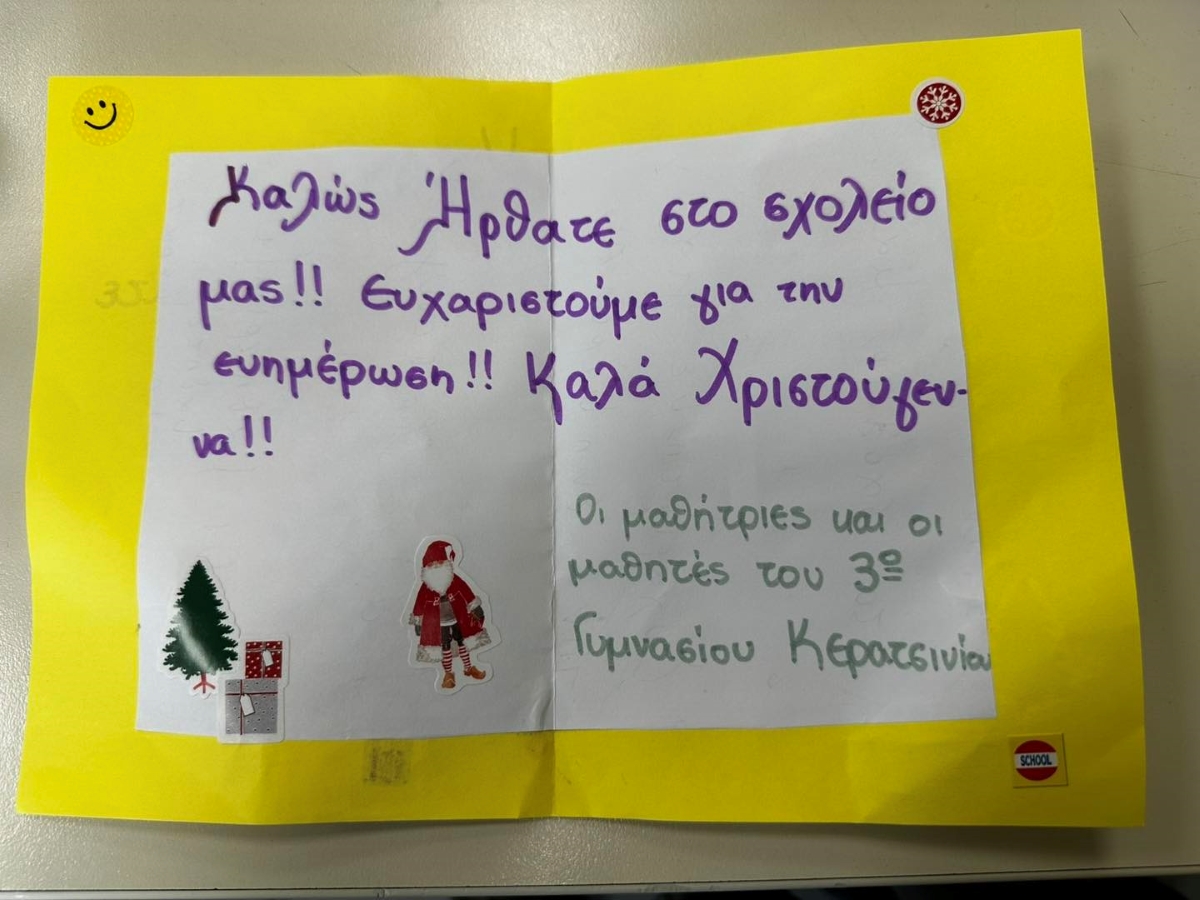 Καλώς Ήρθατε στο σχολείο
μας!! Ευχαριστούμε για την
ευημέρωση!! Καλά Χριστούγεν-
να!!
Οι μαθήτριες και οι
μαθητές του 3º
Γυμνασίου Κερατσινίου
SCHOOL